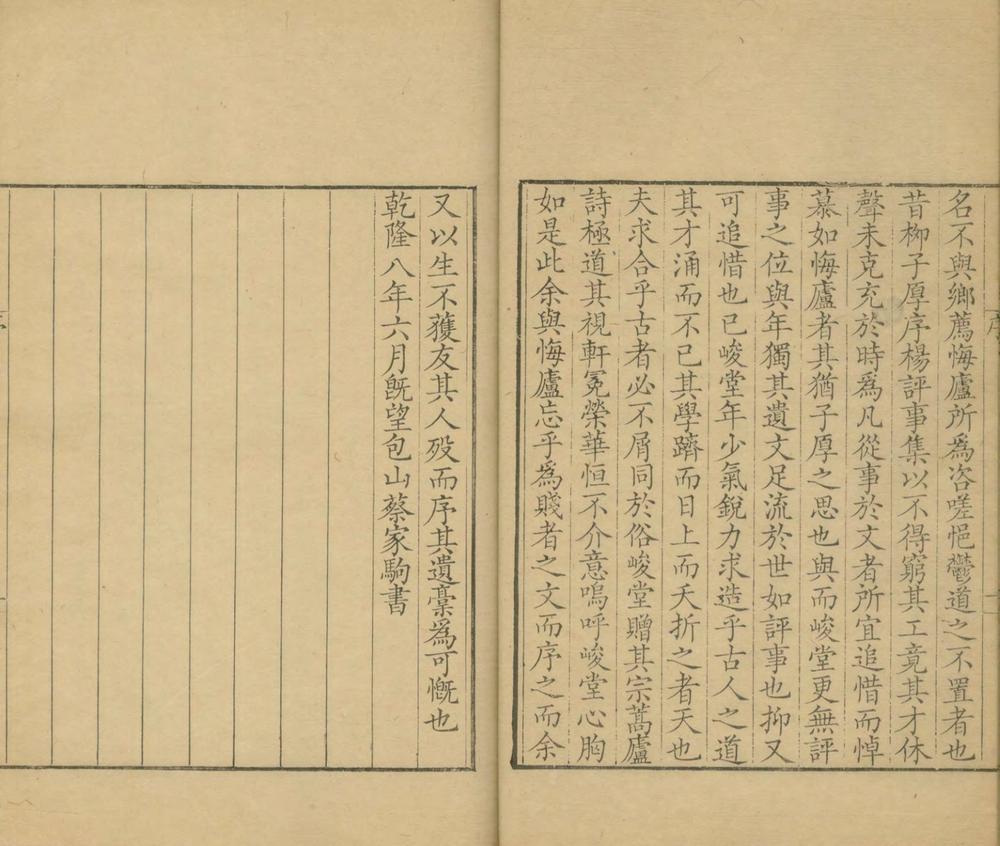 名不與鄉薦悔廬所爲咨嗟悒鬱道之不置者也
昔柳子厚序楊評事集以不得窮其工竟其才休
聲未克充於時爲凡從事於文者所宜追惜而悼
慕如悔廬者其猶子厚之思也與而峻堂更無評
事之位與年獨其遺文足流於世如評事也抑又
可追惜也已峻堂年少氣銳力求造乎古人之道
其才涌而不已其學躋而日上而夭折之者天也
夫求合乎古者必不屑同於俗峻堂贈其宗蒿廬
詩極道其視軒冕榮華恒不介意嗚呼峻堂心胸
如是此余與悔廬忘乎爲賤者之文而序之而余
又以生不獲友其人歿而序其遺稾爲可慨也
乾隆八年六月旣望包山蔡家駒書